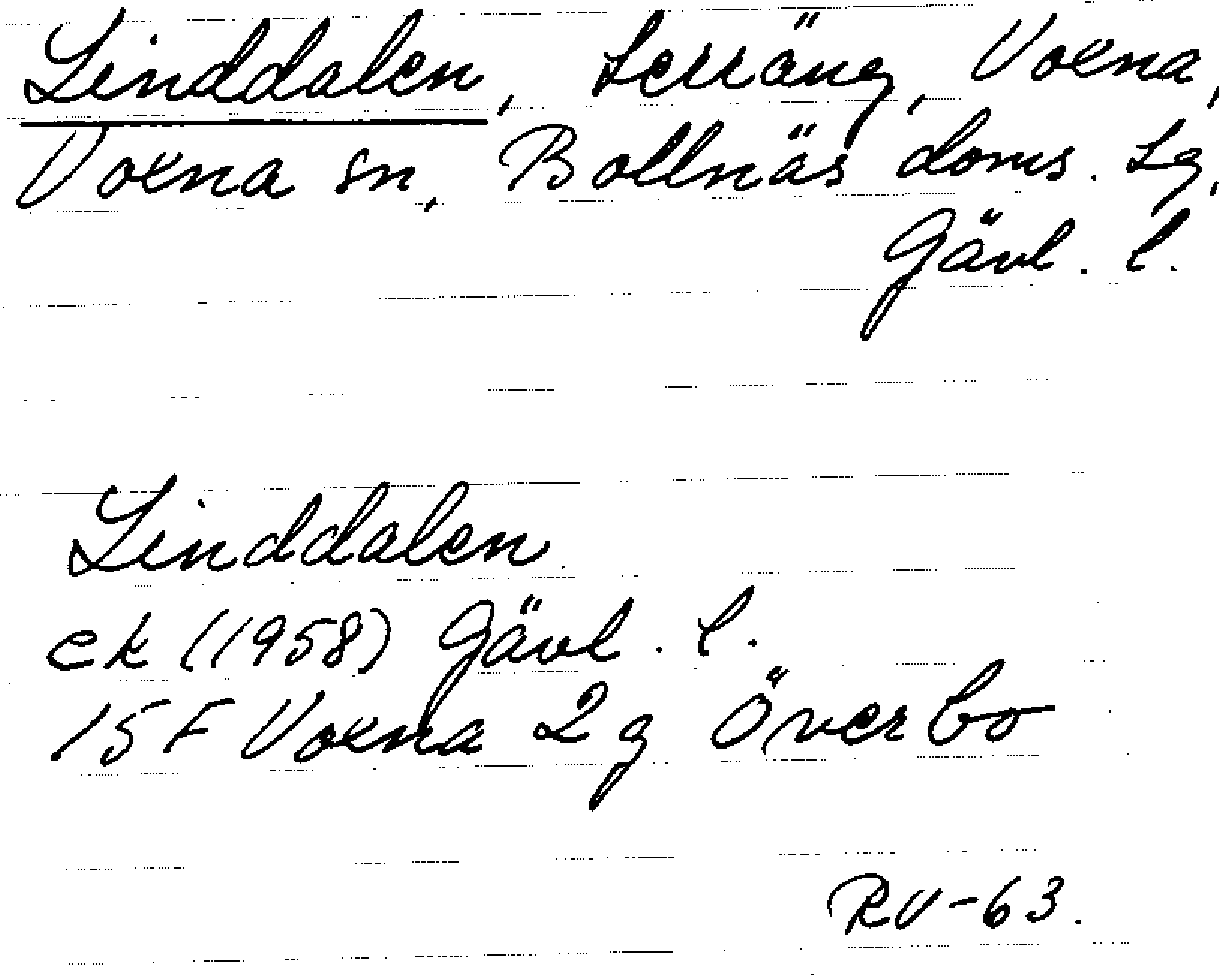 Linddalen, terräng, Voxna,
Voxna sn, Bollnäs doms. tg,
Gävl. l.
Linddalen
ek (1958) Gävl. l.
15 F Voxna 2 g Överbo
RV-63.